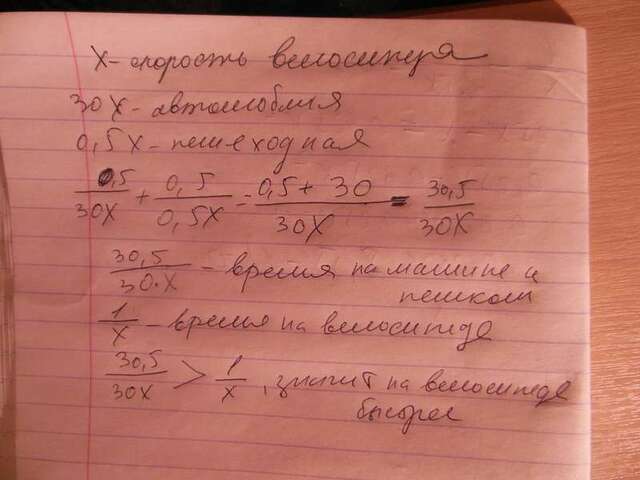 x - скорость велосипеда
30x - автомобиля
0,5x - пешеходная
0,5/30x + 0,5/0,5x = 0,5 + 30/30x = 30,5/30x
30,5/30·x - время на машине и
пешком
1/x - время на велосипеде
30,5/30x > 1/x, значит на велосипеде
быстрее